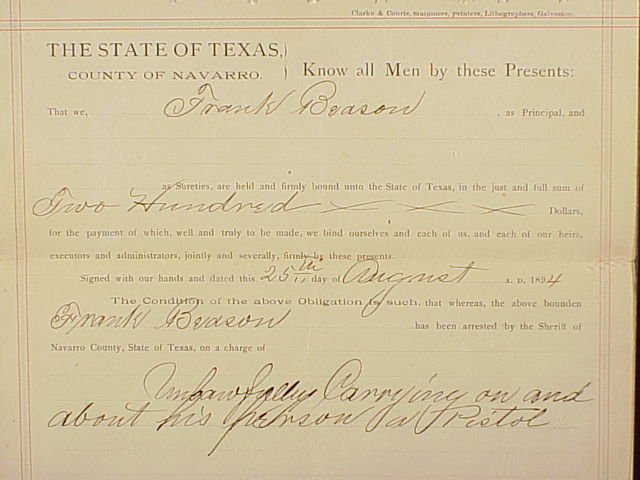 Clarke & Courts, stationers, printers, Lithographers, Galveston.
THE STATE OF TEXAS,
COUNTY OF NAVARRO.
Know all Men by these Presents:
That we, Frank Beason, as Principal, and
as Sureties, are held and firmly bound unto the State of Texas, in the just and full sum of
Two Hundred Dollars,
for the payment of which, well and truly to be made, we bind ourselves and each of us, and each of our heirs,
executors and administrators, jointly and severally, firmly by these presents.
Signed with our hands and dated this 25th day of August A. D. 1894
The Condition of the above Obligation is such, that whereas, the above bounden
Frank Beason has been arrested by the Sheriff of
Navarro County, State of Texas, on a charge of
Unlawfully Carrying on and
about his person a Pistol